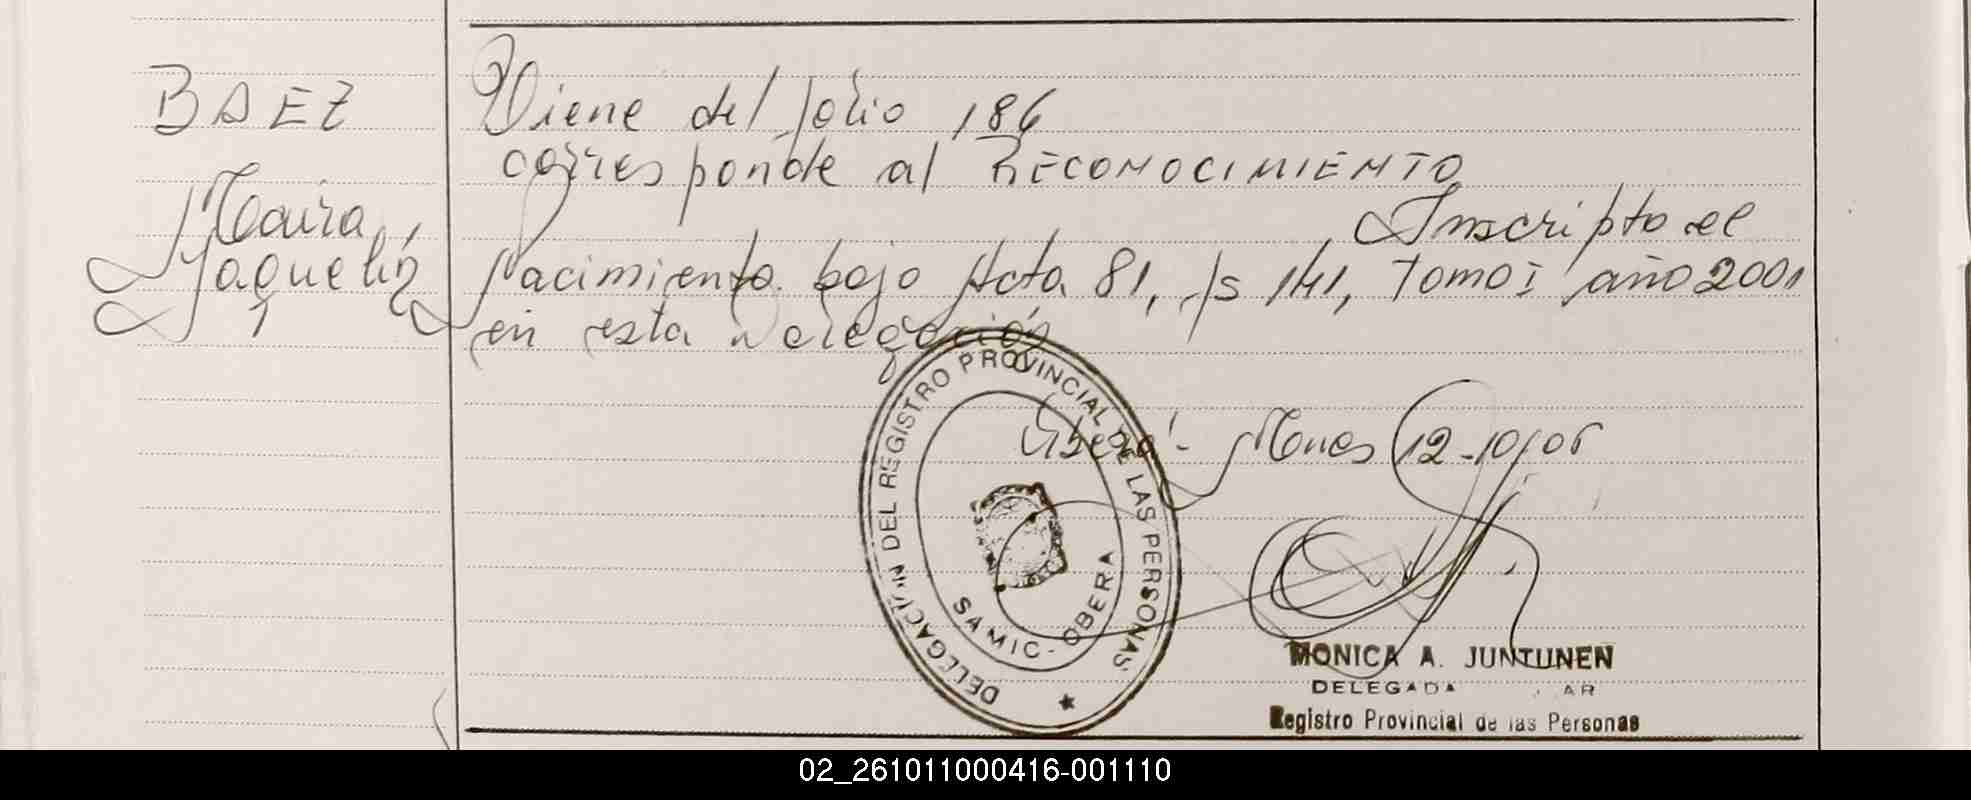 BAEZ
Maira
Jaquelin
Viene del folio 186
corresponde al RECONOCIMIENTO
Inscripto el
Nacimiento bajo Acta 81, fs 141, Tomo I año 2001
en esta Delegación
Oberá - Mnes 12-10-06
DELEGACION DEL REGISTRO PROVINCIAL DE LAS PERSONAS
SAMIC - OBERA
MONICA A. JUNTUNEN
DELEGADA
Registro Provincial de las Personas
02_261011000416-001110